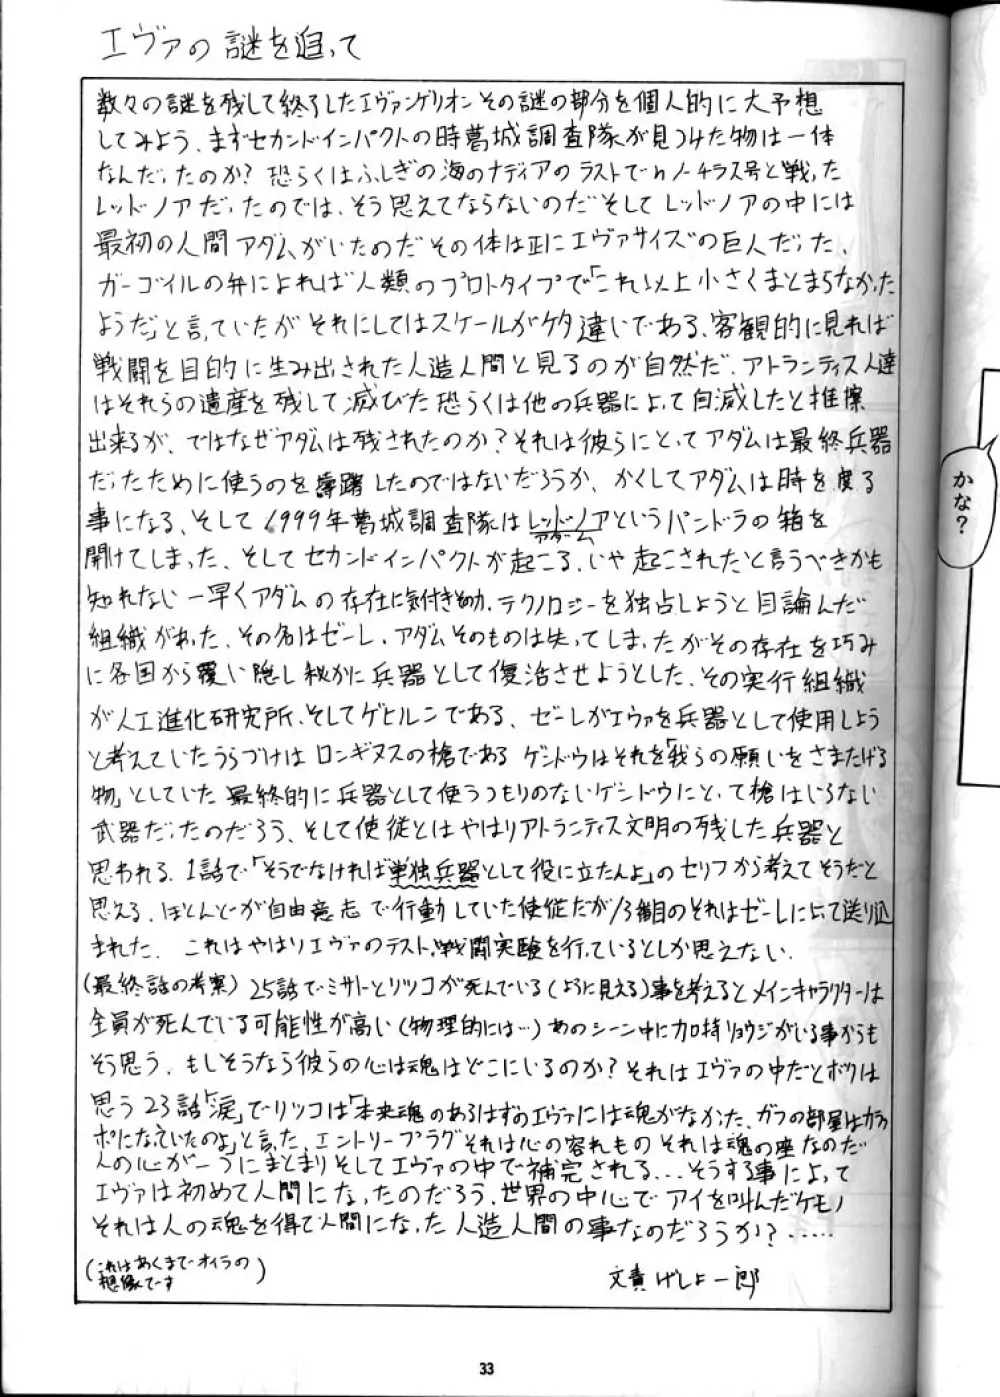 エヴァの謎を追って
数々の謎を残して終了したエヴァンゲリオンその謎の部分を個人的に大予想
してみよう、まずセカンドインパクトの時葛城調査隊が見つけた物は一体
なんだったのか？恐らくはふしぎの海のナディアのラストでnノーチラス号と戦った
レッドノアだったのでは、そう思えてならないのだそしてレッドノアの中には
最初の人間アダムがいたのだその体は正にエヴァサイズの巨人だった、
ガーゴイルの弁によれば人類のプロトタイプで「これ以上小さくまとまらなかった
ようだ」と言っていたがそれにしてはスケールがケタ違いである、客観的に見れば
戦闘を目的に生み出された人造人間と見るのが自然だ、アトランティス人達
はそれらの遺産を残して滅びた恐らくは他の兵器によって自滅したと推察
出来るが、ではなぜアダムは残されたのか？それは彼らにとってアダムは最終兵器
だったために使うのを躊躇したのではないだろうか、かくしてアダムは時を度る
事になる、そして1999年葛城調査隊はレッドノアというパンドラの箱を
アダム
開けてしまった、そしてセカンドインパクトが起こる、いや起こされたと言うべきかも
知れない一早くアダムの存在に気付き テクノロジーを独占しようと目論んだ
組織があった、その名はゼーレ、アダムそのものは失ってしまったがその存在を巧み
に各国から覆い隠し秘かに兵器として復活させようとした、その実行組織
が人工進化研究所、そしてゲヒルンである、ゼーレがエヴァを兵器として使用しよう
と考えていたうらづけはロンギヌスの槍である ゲンドウはそれを「我らの願いをさまたげる
物」としていた 最終的に兵器として使うつもりのないゲンドウにとって槍はいらない
武器だったのだろう、そして使徒とはやはりアトランティス文明の残した兵器と
思われる、1話で「そうでなければ単独兵器として役に立たんよ」のセリフから考えてそうだと
思える、ほとんどが自由意志で行動していた使徒だが13番目のそれはゼーレによって送り込
まれた、これはやはりエヴァのテスト、戦闘実験を行っているとしか思えない、
（最終話の考案）25話でミサトとリツコが死んでいる（ように見える）事を考えるとメインキャラクターは
全員が死んでいる可能性が高い（物理的には…）あのシーン中に加持リョウジがいる事からも
そう思う、もしそうなら彼らの心は魂はどこにいるのか？それはエヴァの中だとボクは
思う23話「涙」でリツコは「本来魂のあるはずのエヴァには魂がなかった、ガフの部屋はカラッ
ポになっていたのよ」と言った、エントリープラグそれは心の容れもの それは魂の座なのだ
人の心が一つにまとまりそしてエヴァの中で補完される…そうする事によって
エヴァは初めて人間になったのだろう、世界の中心でアイを叫んだケモノ
それは人の魂を得て人間になった人造人間の事なのだろうか？……
（これはあくまでオイラの
想像です）
文責 げしょ一郎
33
かな？